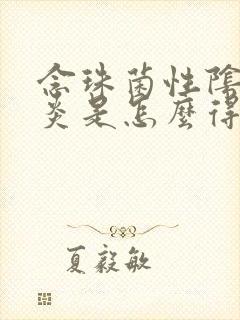 念珠菌性陰
炎是怎麼得
夏毅敏